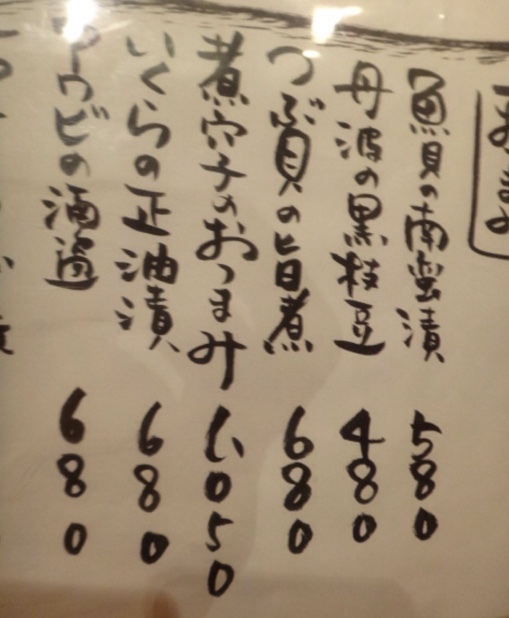 魚貝の南蛮漬 580
丹波の黒枝豆 480
つぶ貝の旨煮 680
煮穴子のおつまみ 1,050
いくらの正油漬 680
アワビの酒 680